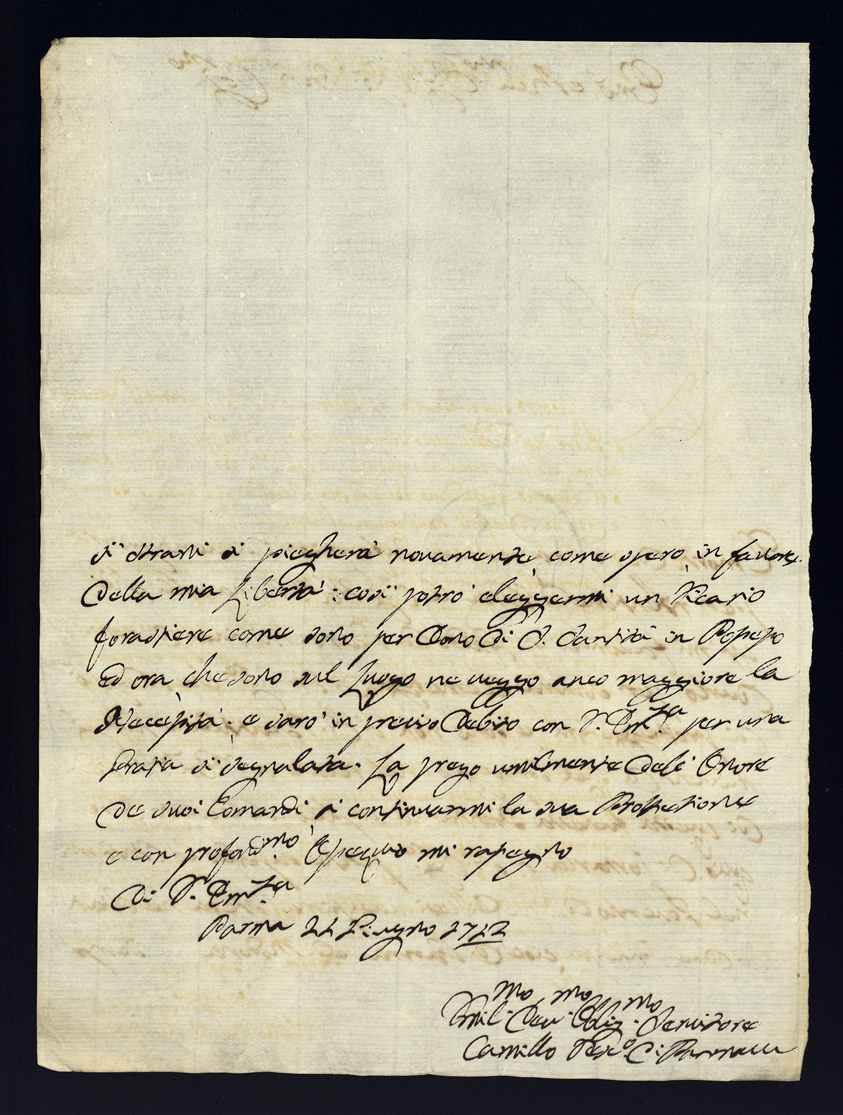 si pieghera' novamente come spero in favore
della mia Libertà: così potrò eleggermi un Vicario
forastiere come sono per Dono di S. Santità in Possesso
ed ora che sono sul Luogo ne veggo anco maggiore la
Necessità: e sarò in preciso Debito con V. Em.za per una
Grazia sì segnalata. La prego umilmente dell' Onore
de suoi Comandi si continuarmi la sua Protettione
e con profond.mo Ossequio mi rasegno
Di V. Em.za
Parma 22 Giugno 1712
Umil.mo Dev.mo Oblig.mo Servitore
Camillo Vesc.o di Parma